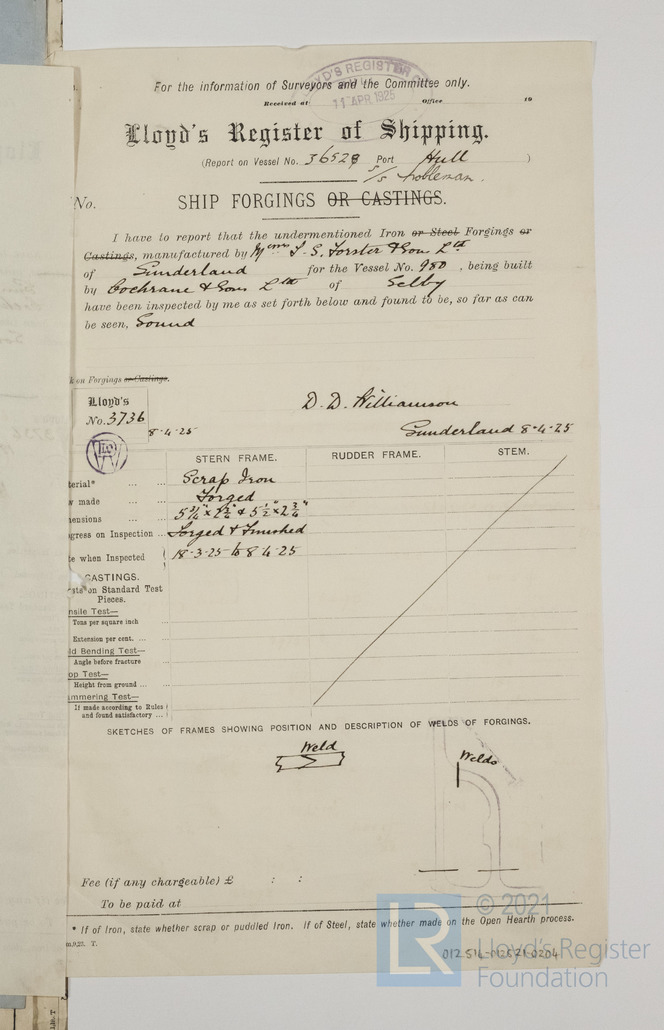 For the information of Surveyors and the Committee only.
LLOYD'S REGISTER
11 APR 1925
Received at Office 19
Lloyd's Register of Shipping.
(Report on Vessel No. 36529 Port Hull )
S/S Nobleman.
No. SHIP FORGINGS OR CASTINGS.
I have to report that the undermentioned Iron or Steel Forgings or
Castings, manufactured by Messrs T. S. Forster & Sons Ltd
of Sunderland for the Vessel No. 980 , being built
by Cochrane & Sons Ltd of Selby
have been inspected by me as set forth below and found to be, so far as can
be seen, Sound
k on Forgings or Castings.
Lloyd's
No. 3736
8-4-25
D. D. Williamson
Sunderland 8-4-25
STERN FRAME. RUDDER FRAME. STEM.
terial* ... ... Scrap Iron
w made ... ... Forged
ensions ... ...
ogress on Inspection ... Forged & Finished
te when Inspected 18-3-25 to 8-4-25
CASTINGS.
sts on Standard Test
Pieces.
nsile Test—
Tons per square inch
Extension per cent. ... ...
ld Bending Test—
Angle before fracture
op Test—
Height from ground ... ...
mmering Test—
If made according to Rules
and found satisfactory ...
SKETCHES OF FRAMES SHOWING POSITION AND DESCRIPTION OF WELDS OF FORGINGS.
Weld
Welds
Fee (if any chargeable) £ : :
To be paid at
* If of Iron, state whether scrap or puddled Iron. If of Steel, state whether made on the Open Hearth process.
m.9,23. T.
© 2021
LR Lloyd's Register
Foundation
012514-012571-0204